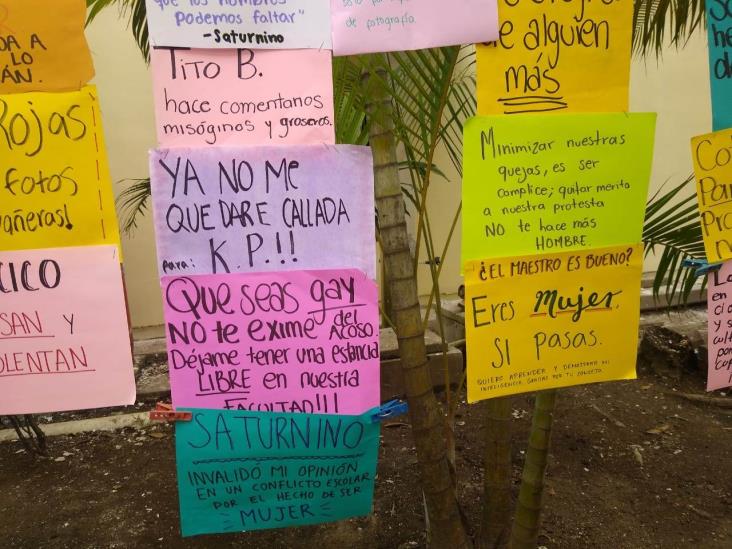 DA A
LO
ÁN.
Rojas
fotos
añeras!
CICO
SAN y
OLENTAN
que los hombres
Podemos faltar"
-Saturnino
TITO B.
hace comentarios
misóginos y groseros.
YA NO ME
QUE DARE CALLADA
para: K.P.!!
Que seas gay
NO te exime del
ACOSO.
Déjame tener una estancia
LIBRE en nuestra
FACULTAD!!!
SATURNINO
INVALIDÓ MI OPINIÓN
EN UN CONFLICTO ESCOLAR
POR EL HECHO DE SER
MUJER
de fotografía
de alguien
más
Minimizar nuestras
quejas, es ser
complice; quitar merito
a nuestra protesta
NO te hace más
HOMBRE.
¿EL MAESTRO ES BUENO?
Eres Mujer.
SI pasas.
QUIERO APRENDER Y DEMOSTRAR MI
INTELIGENCIA